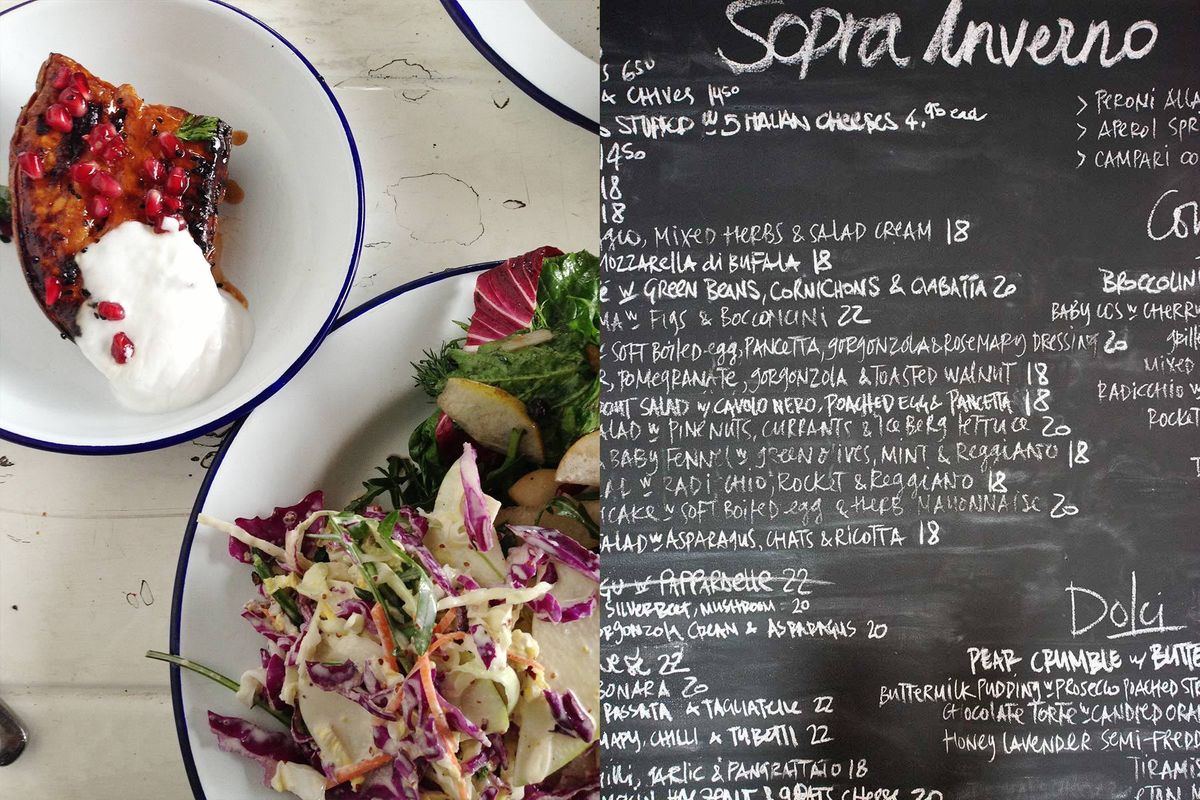 Sopra Inverno
S 6.50
& CHIVES 14.50
STUFFED W 5 ITALIAN CHEESES 4.95 ead
14.50
18
18
MIXED HERBS & SALAD CREAM 18
MOZZARELLA di BUFALA 18
W GREEN BEANS, CORNICHONS & CIABATTA 20
W FIGS & BOCCONCINI 22
SOFT BOILED egg, PANCETTA, GORGONZOLA & ROSEMARY DRESSING 20
POMEGRANATE, GORGONZOLA & TOASTED WALNUT 18
SALAD W CAVOLO NERO, POACHED EGG & PANCETTA 18
ALAD W PINENUTS, CURRANTS & ICEBERG LETTUCE 20
BABY FENNEL W GREEN OLIVES, MINT & REGGIANO 18
W RADICCHIO, ROCKET & REGGIANO 18
CAKE W SOFT BOILED egg & HERB MAYONNAISE 20
ALAD W ASPARAGUS, CHATS & RICOTTA 18
GU W PAPPARDELLE 22
SILVERBEET, MUSHROOM 20
ORGONZOLA CREAM & ASPARAGUS 20
ESE 22
BONARA 20
PASSATA & TAGLIATELLE 22
CHILLI & TUBETTI 22
GARLIC & PANGRATTATO 18
HAZELNUT & GOATS CHEESE 20
> PERONI ALLA
> APEROL SPR
> CAMPARI
Con
BROCCOLIN
BABY COS W CHERR
GRILL
MIXED
RADICCHIO W
ROCKET
Dolci
PEAR CRUMBLE W BUTTE
BUTTERMILK PUDDING W PROSECCO POACHED ST
CHOCOLATE TORTE W CANDIED ORAN
HONEY LAVENDER SEMI-FREDD
TIRAMIS